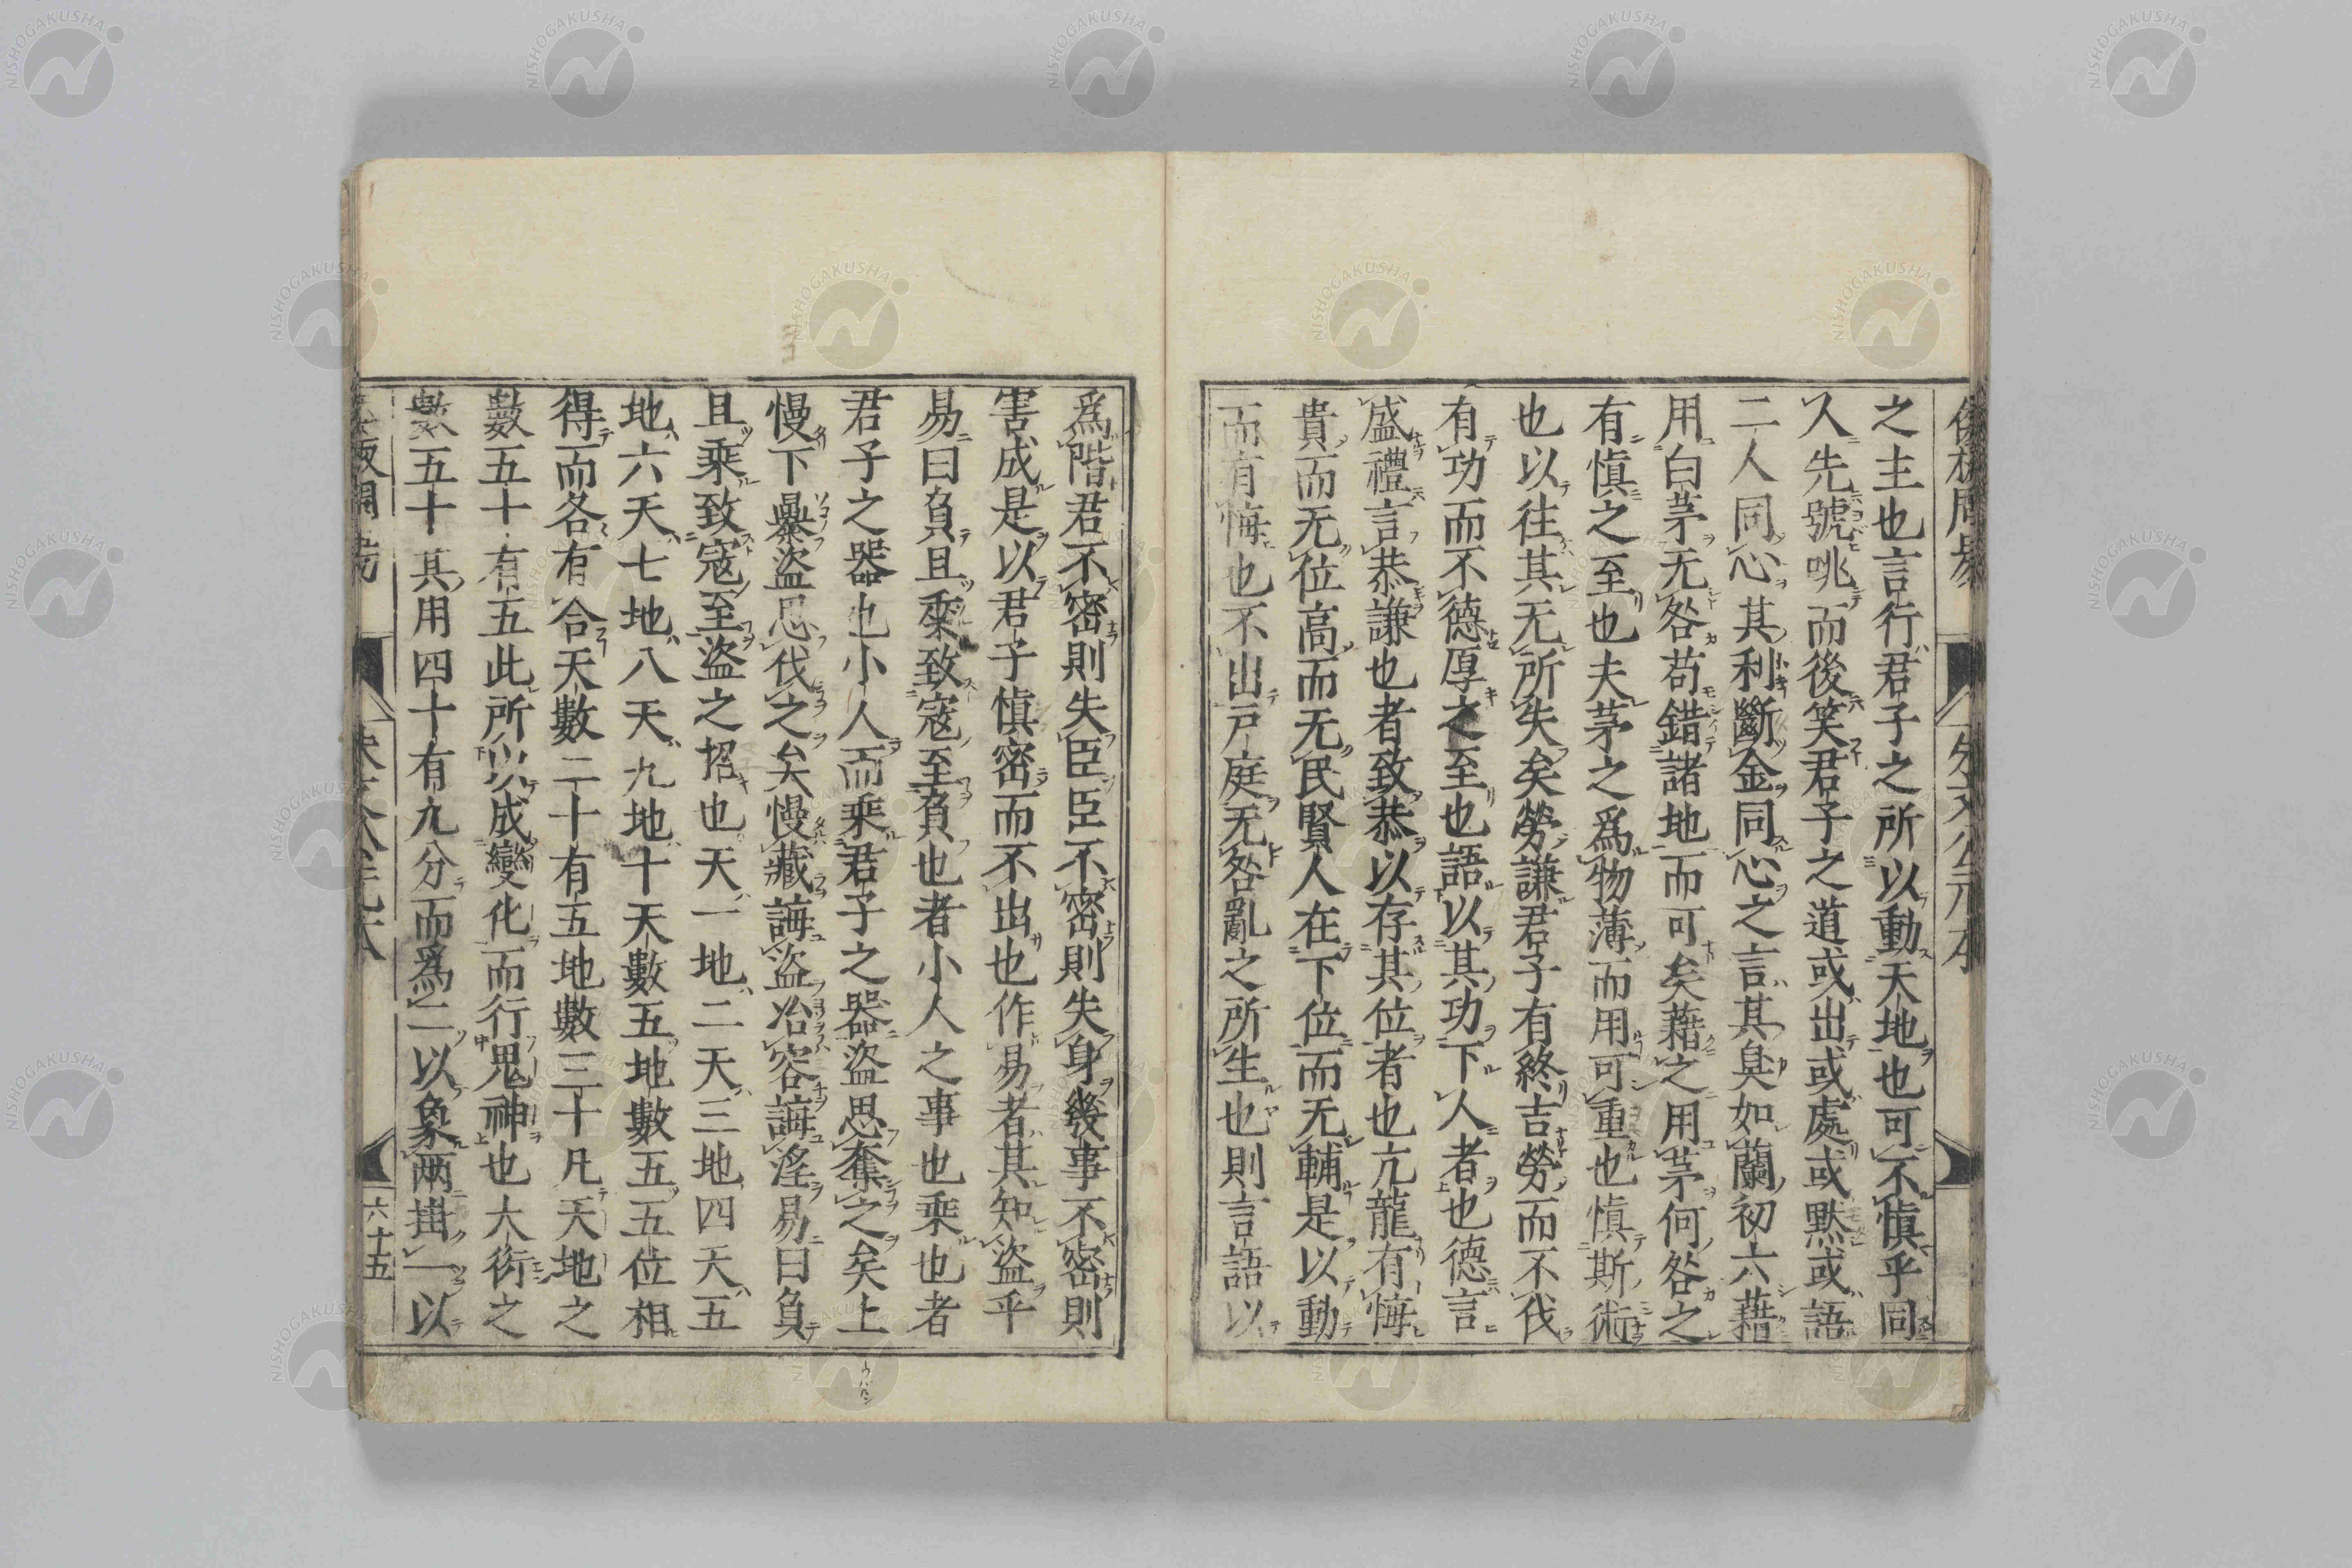 之主也言行君子之所以動天地也可不愼乎同
人先號咷而後笑君子之道或出或處或默或語
二人同心其利斷金同心之言其臭如蘭初六藉
用白茅无咎苟錯諸地而可矣藉之用茅何咎之
有愼之至也夫茅之爲物薄而用可重也愼斯術
也以往其无所失矣勞謙君子有終吉勞而不伐
有功而不德厚之至也語以其功下人者也德言
盛禮言恭謙也者致恭以存其位者也亢龍有悔
貴而无位高而无民賢人在下位而无輔是以動
而有悔也不出戸庭无咎亂之所生也則言語以
爲階君不密則失臣臣不密則失身幾事不密則
害成是以君子愼密而不出也作易者其知盜乎
易曰負且乗致寇至負也者小人之事也乗也者
君子之器也小人而乗君子之器盜思奪之矣上
慢下㬥盜思伐之矣慢藏誨盜冶容誨淫易曰負
且乗致寇至盜之招也天一地二天三地四天五
地六天七地八天九地十天數五地數五五位相
得而各有合天數二十有五地數三十凡天地之
數五十有五此所以成變化而行鬼神也大衍之
數五十其用四十有九分而爲二以象兩掛一以
六十五